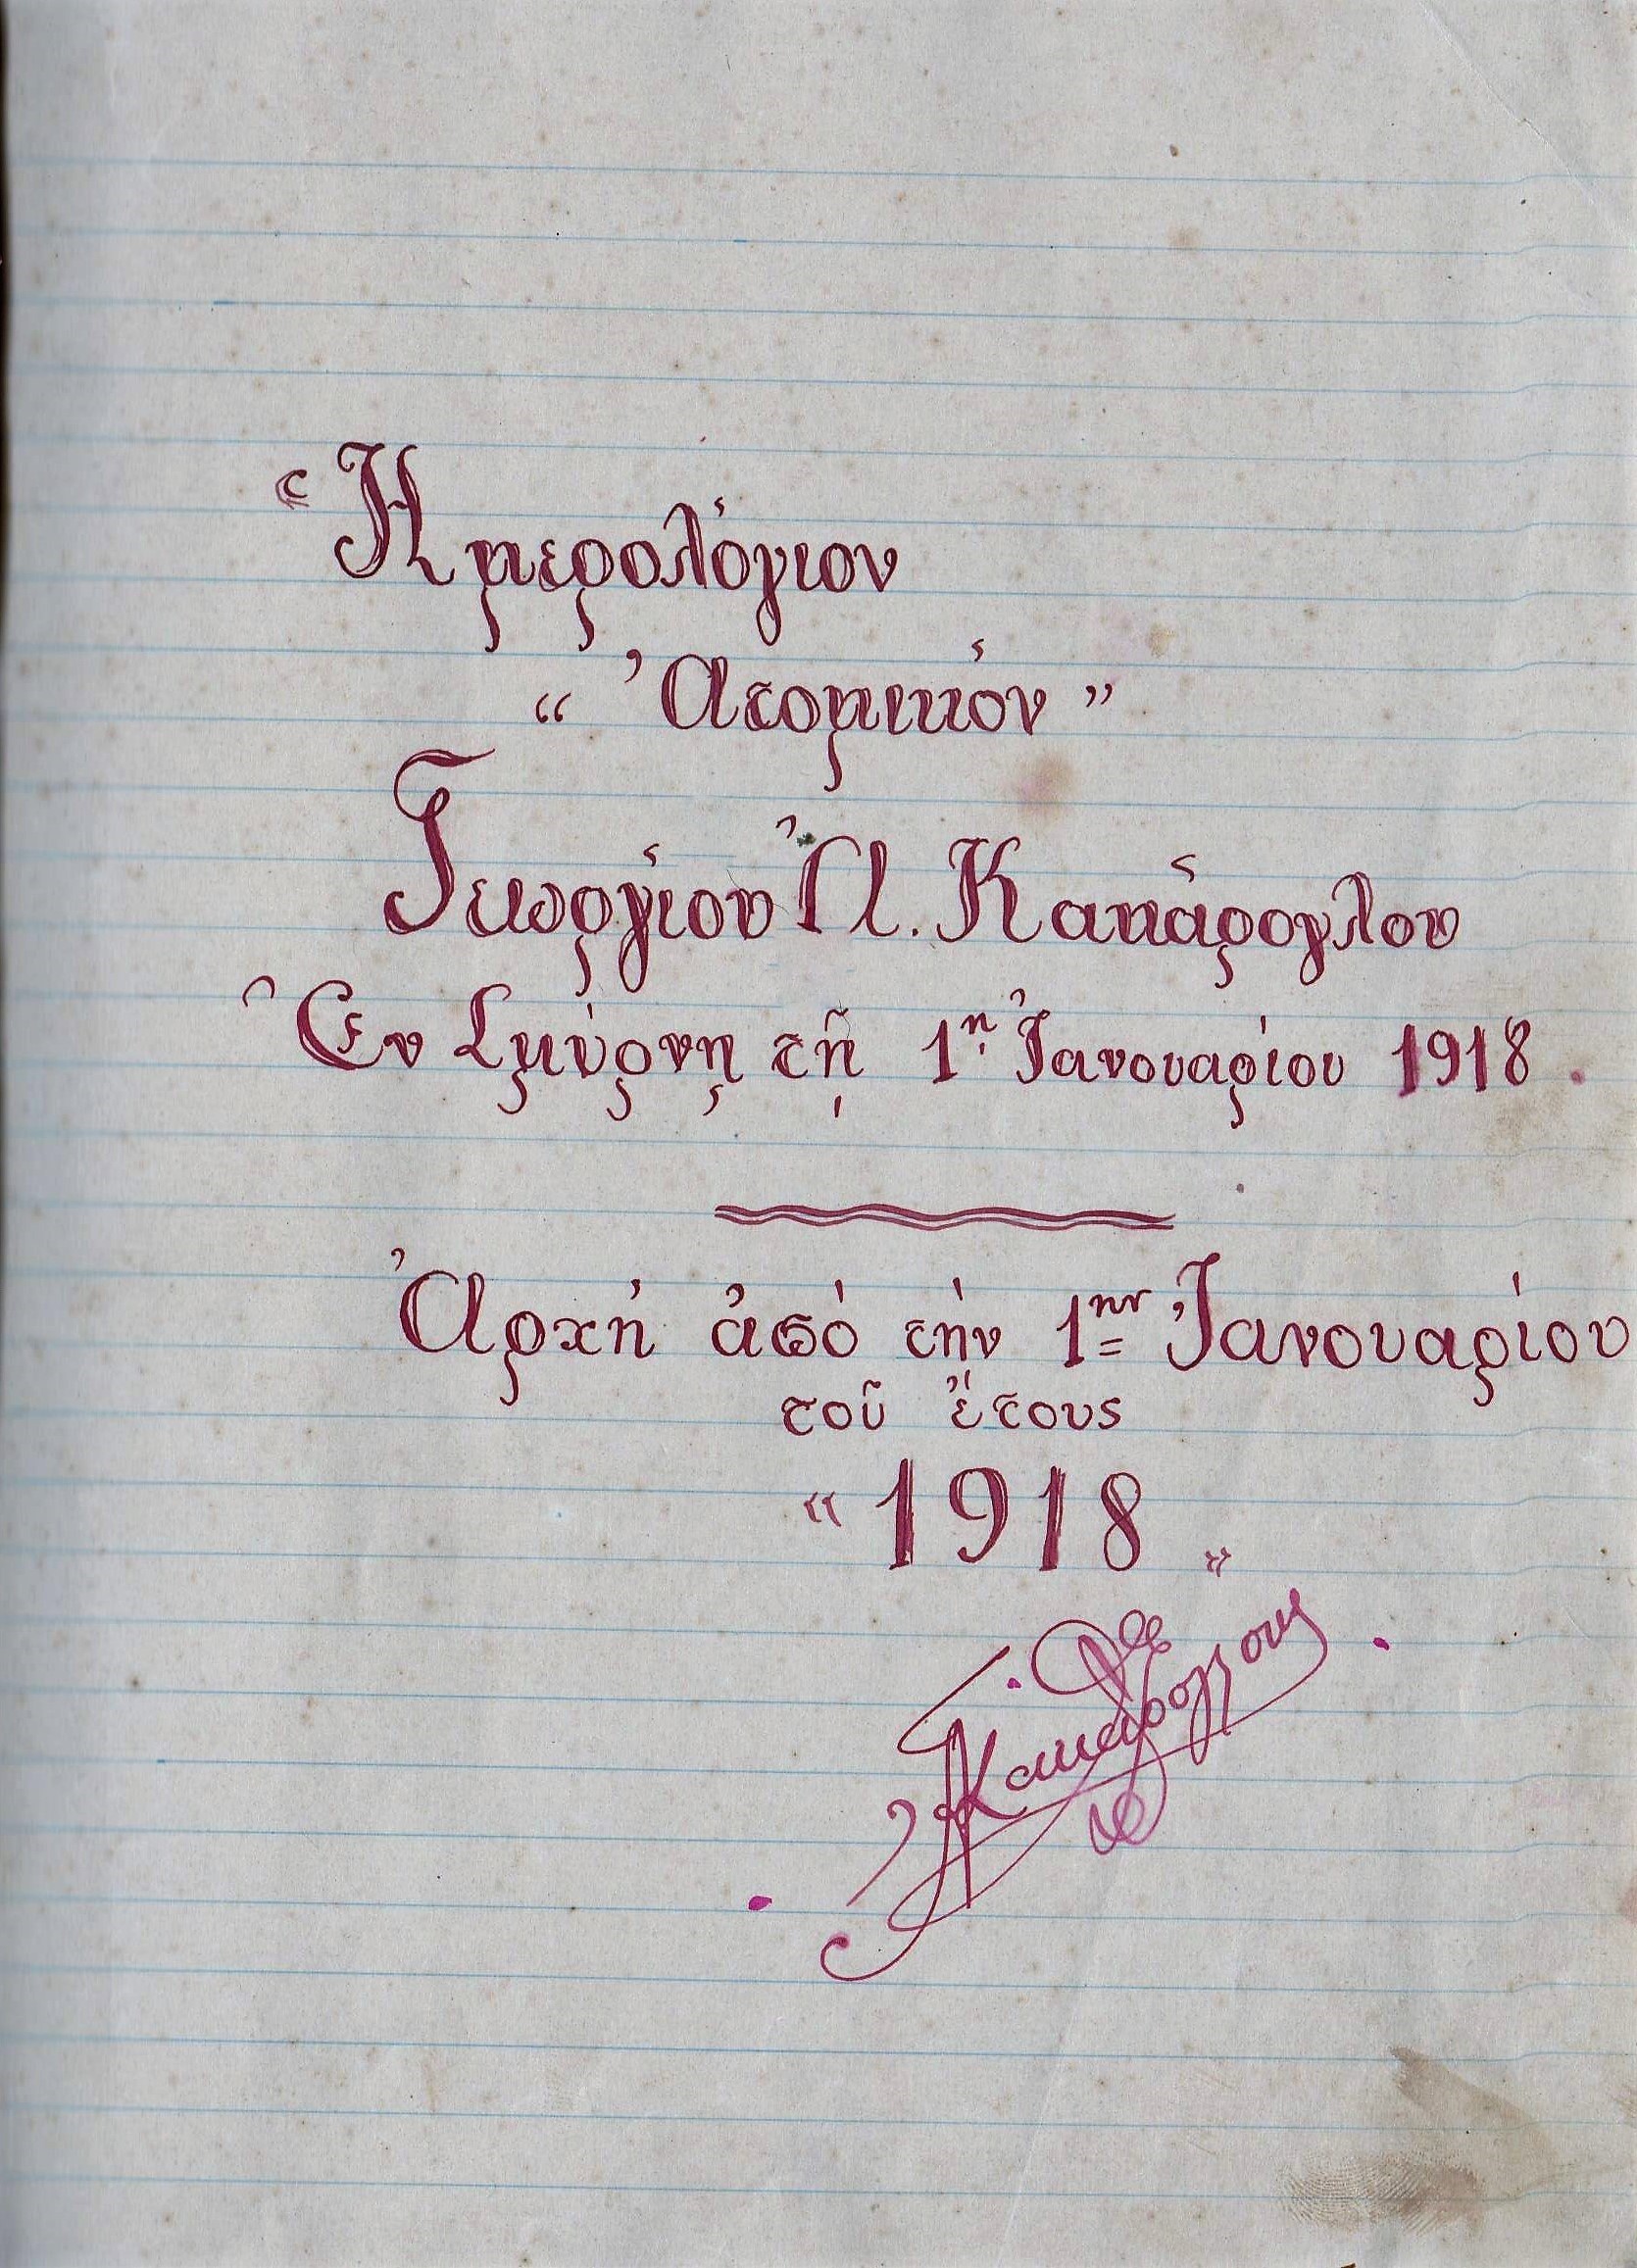 Ἡμερολόγιον
“ Ἀτομικόν ”
Γεωργίου Π. Κακάρογλου
Ἐν Σμύρνῃ τῇ 1η Ἰανουαρίου 1918.
Ἀρχή ἀπό τήν 1ην Ἰανουαρίου
τοῦ ἔτους
“ 1918 „